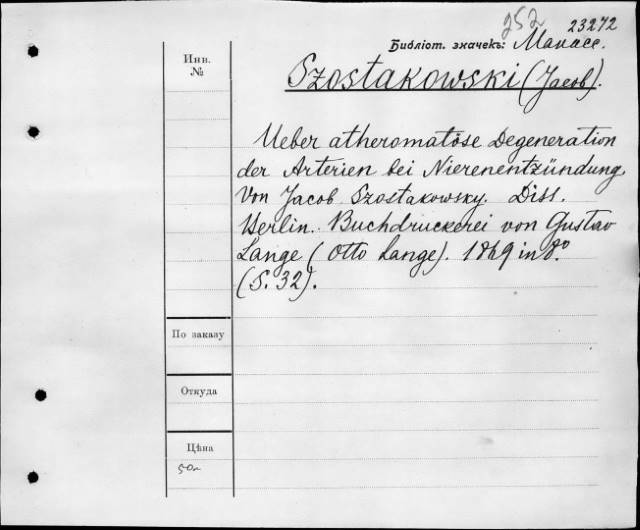 252 23272
Библіот. значекъ: Манасс.
Инв.
№
Szostakowski (Jacob).
Ueber atheromatöse Degeneration
der Arterien bei Nierenentzündung.
Von Jacob Szostakowsky. Diss.
Berlin. Buchdruckerei von Gustav
Lange (Otto Lange). 1869 in 8º.
(S. 32).
По заказу
Откуда
Цѣна
50к